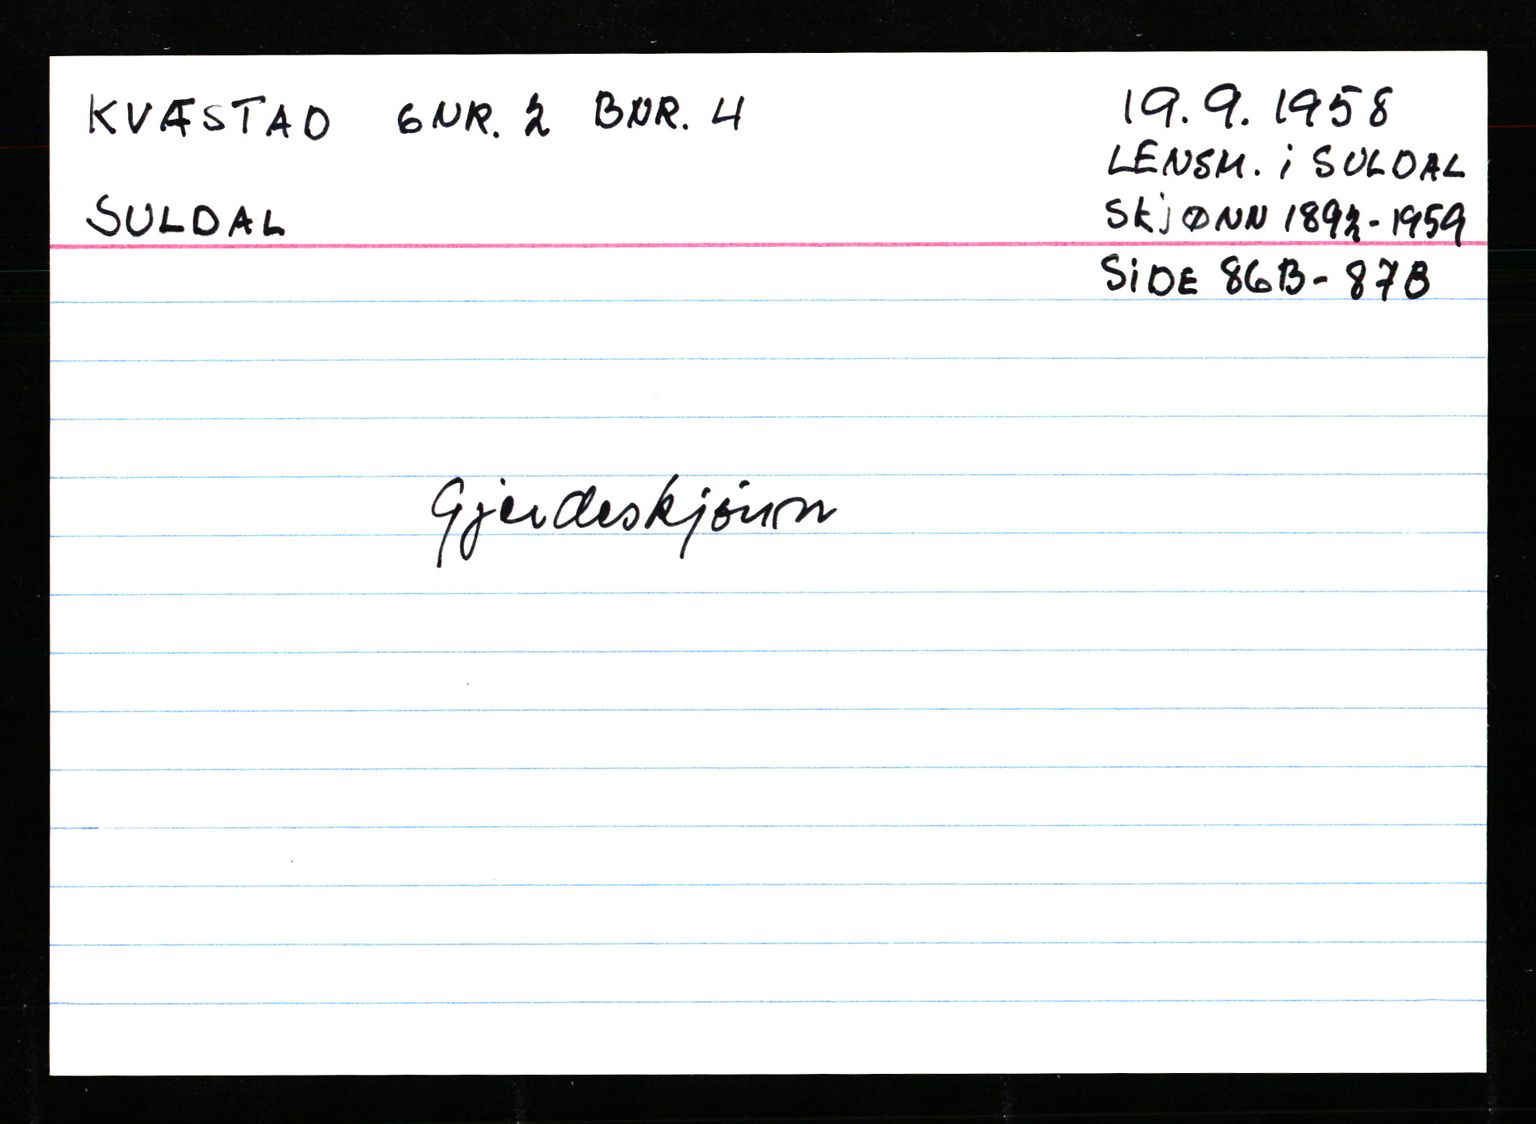 KVÆSTAD GNR. 2 BNR. 4
SULDAL
19.9.1958
LENSM. i SULDAL
SKJØNN 1892-1959
SIDE 86B-87B
Gjerdeskjønn